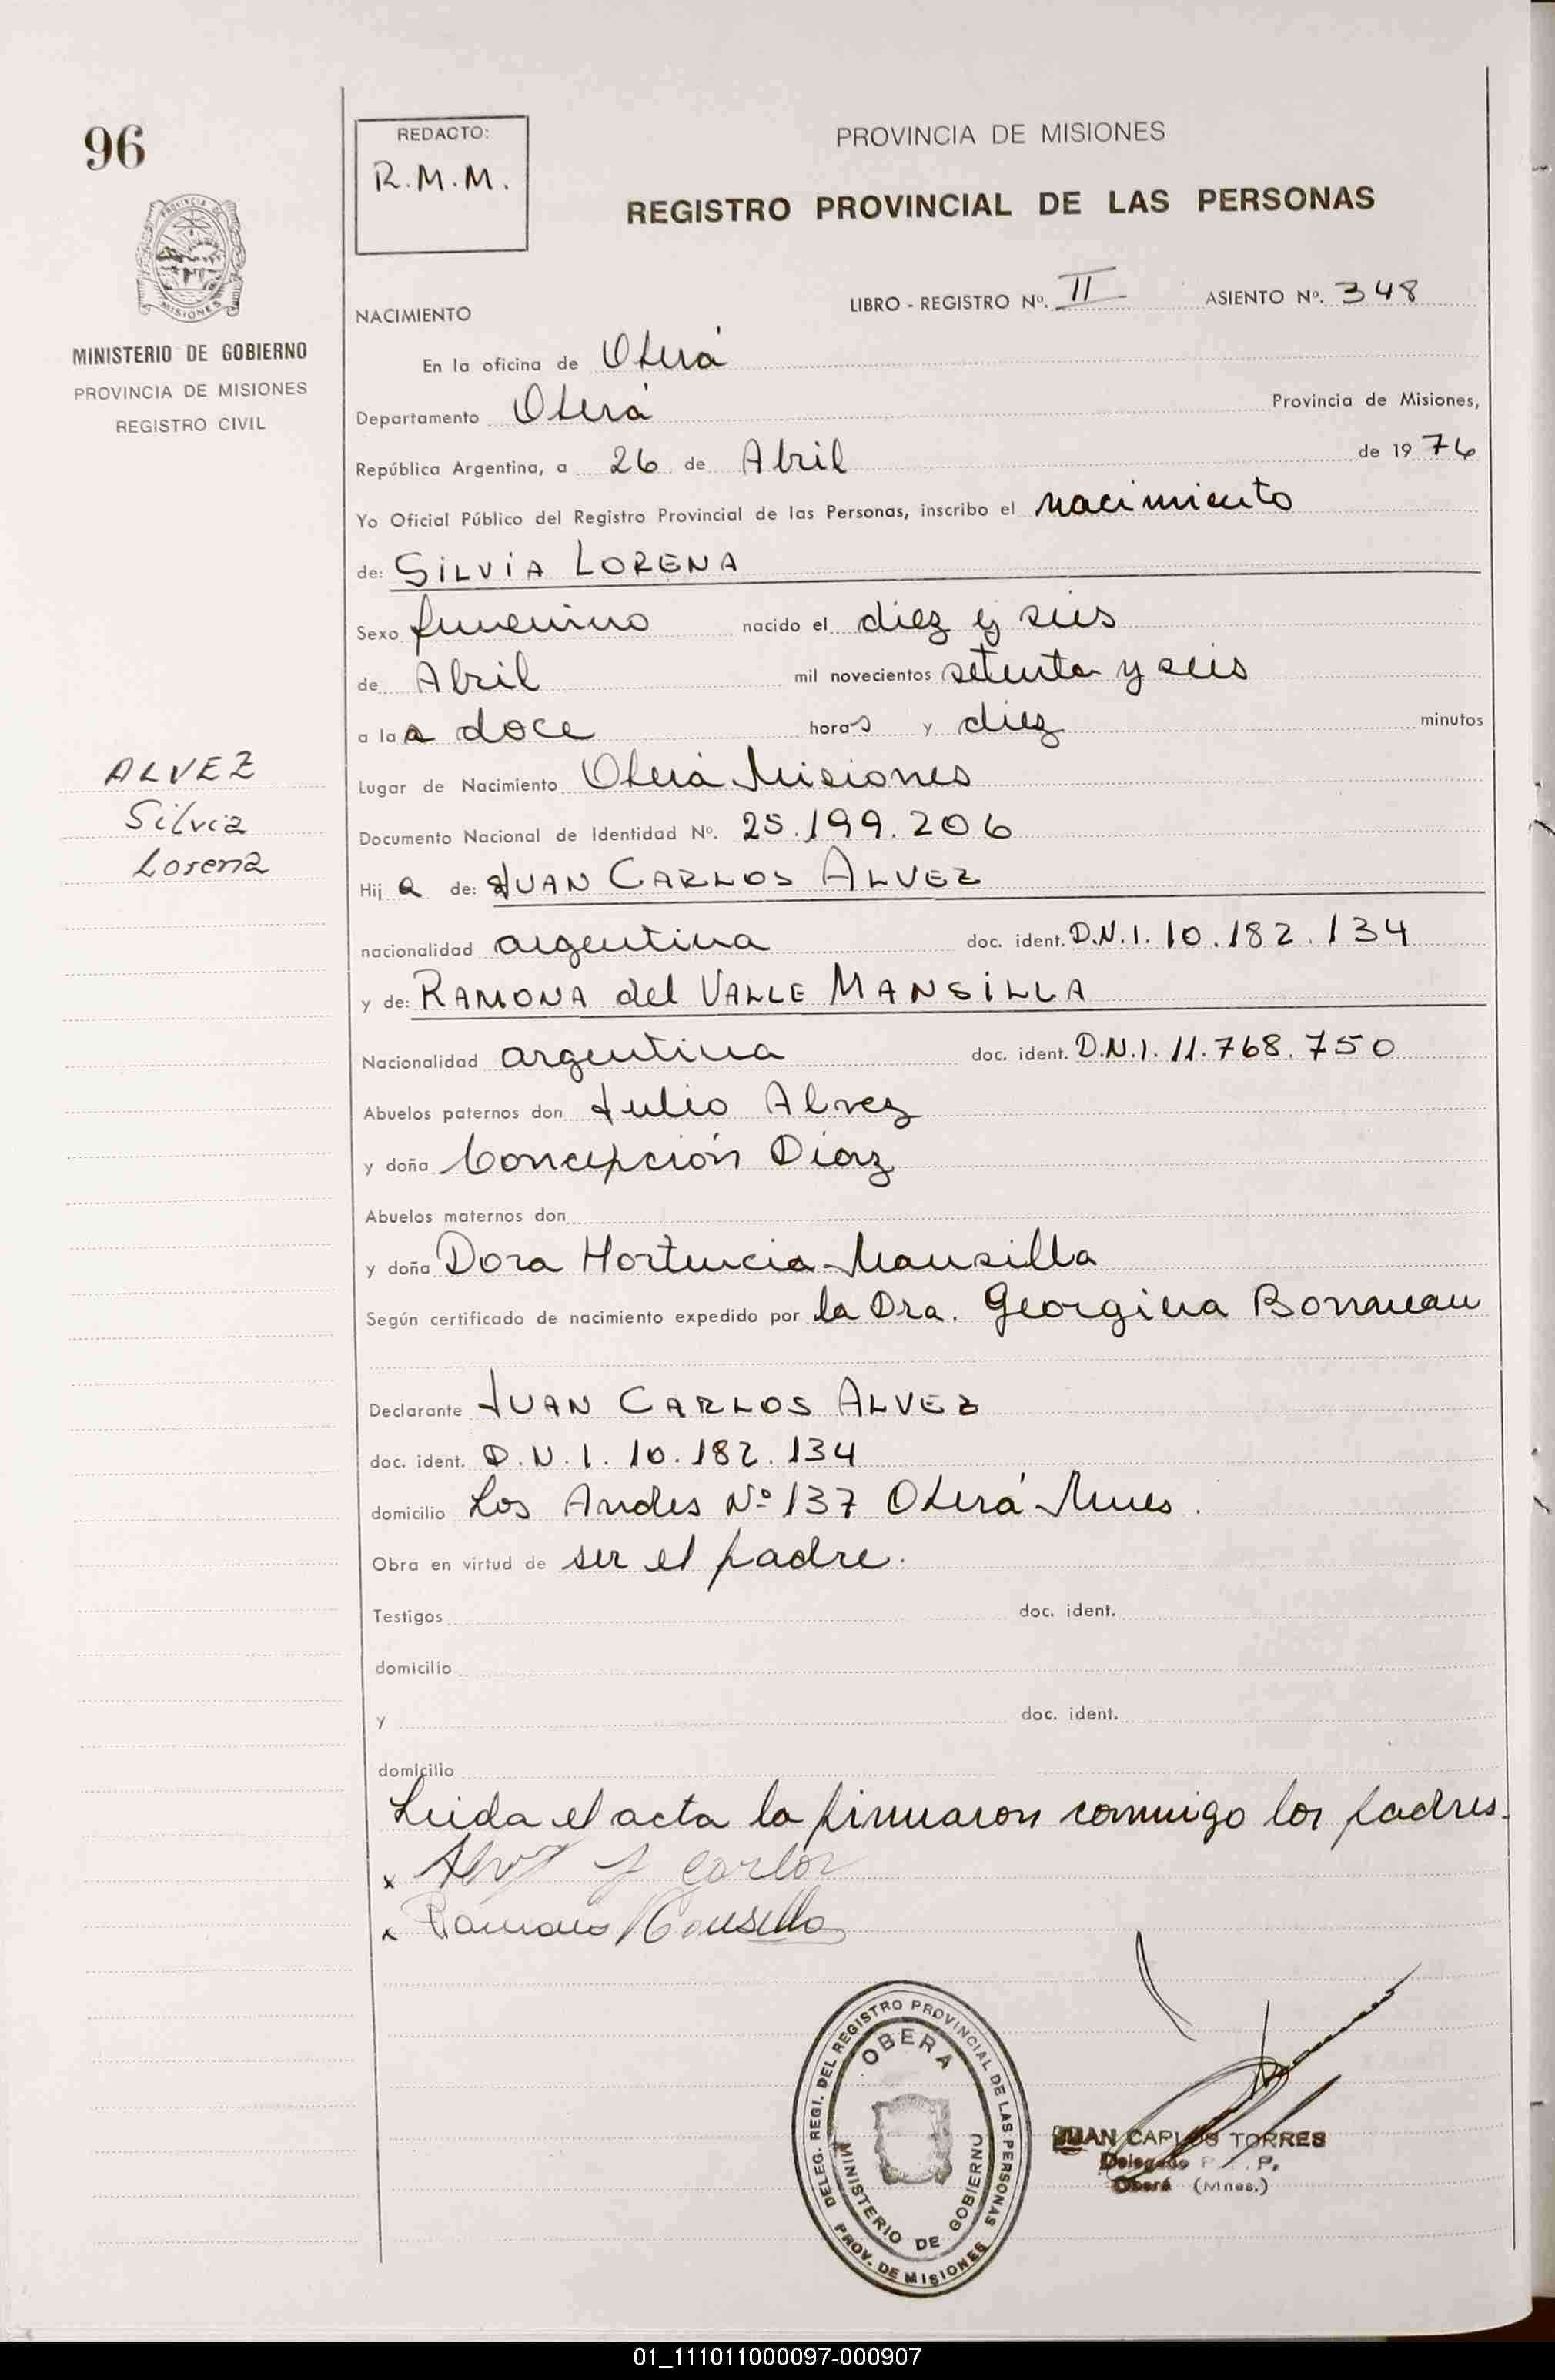 96
REDACTO:
R.M.M.
PROVINCIA DE MISIONES
REGISTRO PROVINCIAL DE LAS PERSONAS
PROVINCIA DE
MISIONES
MINISTERIO DE GOBIERNO
PROVINCIA DE MISIONES
REGISTRO CIVIL
NACIMIENTO
LIBRO - REGISTRO Nº. II ASIENTO Nº. 348
En la oficina de Oberá
Departamento Oberá Provincia de Misiones,
República Argentina, a 26 de Abril de 1976
Yo Oficial Público del Registro Provincial de las Personas, inscribo el nacimiento
de: SILVIA LORENA
Sexo femenino nacido el diez y seis
de Abril mil novecientos setenta y seis
a las doce horas y diez minutos
ALVEZ
Silvia
Lorena
Lugar de Nacimiento Oberá Misiones
Documento Nacional de Identidad Nº. 25.199.206
Hij a de: JUAN CARLOS ALVEZ
nacionalidad argentina doc. ident. D.N.I. 10.182.134
y de: RAMONA del VALLE MANSILLA
Nacionalidad argentina doc. ident. D.N.I. 11.768.750
Abuelos paternos don Julio Alvez
y doña Concepción Diaz
Abuelos maternos don
y doña Dora Hortencia Mansilla
Según certificado de nacimiento expedido por la Dra. Georgina Bonneau
Declarante JUAN CARLOS ALVEZ
doc. ident. D.N.I. 10.182.134
domicilio Los Andes Nº 137 Oberá Mnes.
Obra en virtud de ser el padre.
Testigos doc. ident.
domicilio
y doc. ident.
domicilio
Leida el acta la firmaron conmigo los padres.
x Alvez J Carlos
x Ramona Mansilla
DELEG. REGI. DEL REGISTRO PROVINCIAL DE LAS PERSONAS
OBERA
MINISTERIO DE GOBIERNO
PROV. DE MISIONES
JUAN CARLOS TORRES
Delegado P. P.
Oberá (Mnes.)
01_111011000097-000907